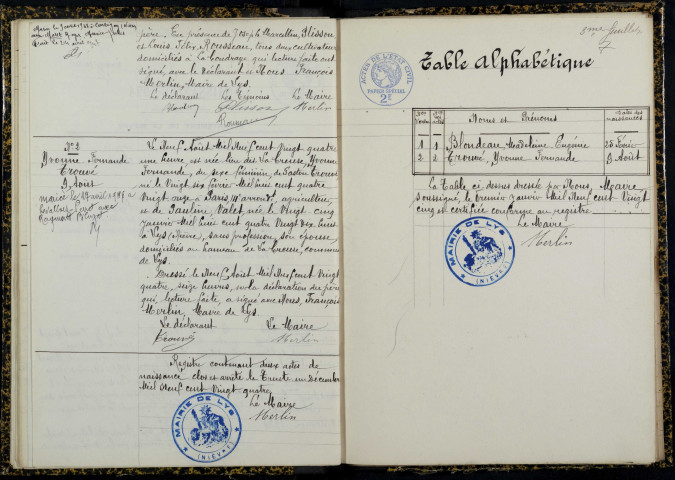 père. En présence de Joseph Charcellon, Glisson
et Louis Félix Rousseau, tous deux cultivateurs
domiciliés à La Coudraye qui lecture faite ont
signé, avec le Déclarant et Nous François
Merlin, Maire de Lys.
Le déclarant Les Témoins Le Maire
Glisson Merlin
Rousseau
N° 2
Yvonne Fernande
Trouvé
9 Août
Le Neuf Août Mil Neuf cent vingt quatre
une heure est née lieu dit La Creuse, Yvonne
Fernande, du sexe féminin, de Gaston Trouvé
né le vingt six février Mil huit cent quatre
vingt onze à Paris, arront, agriculteur,
et de Pauline Valet née le vingt cinq
janvier Mil huit cent quatre vingt dix huit
à Lys (Nièvre), sans profession, son épouse
domiciliés au hameau de La Creuse, commune
de Lys.
Dressé le Neuf Août Mil Neuf cent vingt
quatre, seize heures, sur la déclaration du père
qui, lecture faite, a signé avec Nous, François
Merlin, Maire de Lys.
Le déclarant Le Maire
Trouvé Merlin
Registre contenant deux actes de
naissance clos et arrêté le trente un Décembre
Mil Neuf cent vingt quatre
Le Maire
Merlin
MAIRIE DE LYS
(NIÈVRE)
3me feuillet
ACTES DE L'ÉTAT CIVIL
PAPIER SPÉCIAL
2F
Table Alphabétique
Noms et Prénoms Dates des naissances
1 1 Blondeau Madeleine Eugénie 25 Février
2 2 Trouvé, Yvonne Fernande 9 Août
La Table ci dessus dressée par Nous, Maire
soussigné, le premier Janvier Mil Neuf cent vingt
cinq est certifiée conforme au registre
Le Maire
Merlin
MAIRIE DE LYS
(NIÈVRE)